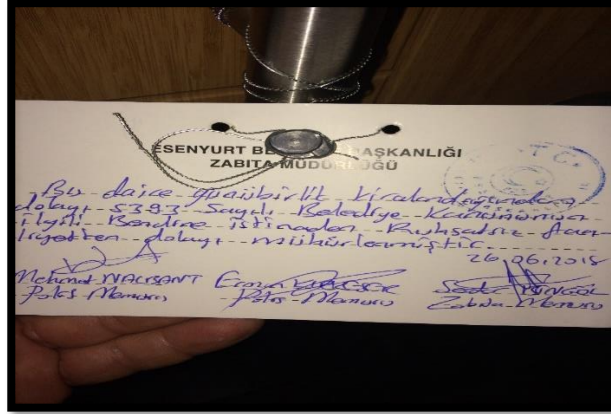 ESENYURT BE AŞKANLIĞI
ZABITA MÜDÜRLÜĞÜ
T.C.
Bu daire günübirlik kiralandığından
dolayı 5393 Sayılı Belediye Kanununun
ilgili Bendine istinaden Ruhsatsız faa-
liyetten dolayı mühürlenmiştir.
26.06.2018
Mehmet
Polis Memuru Polis Memuru Zabıta Memuru